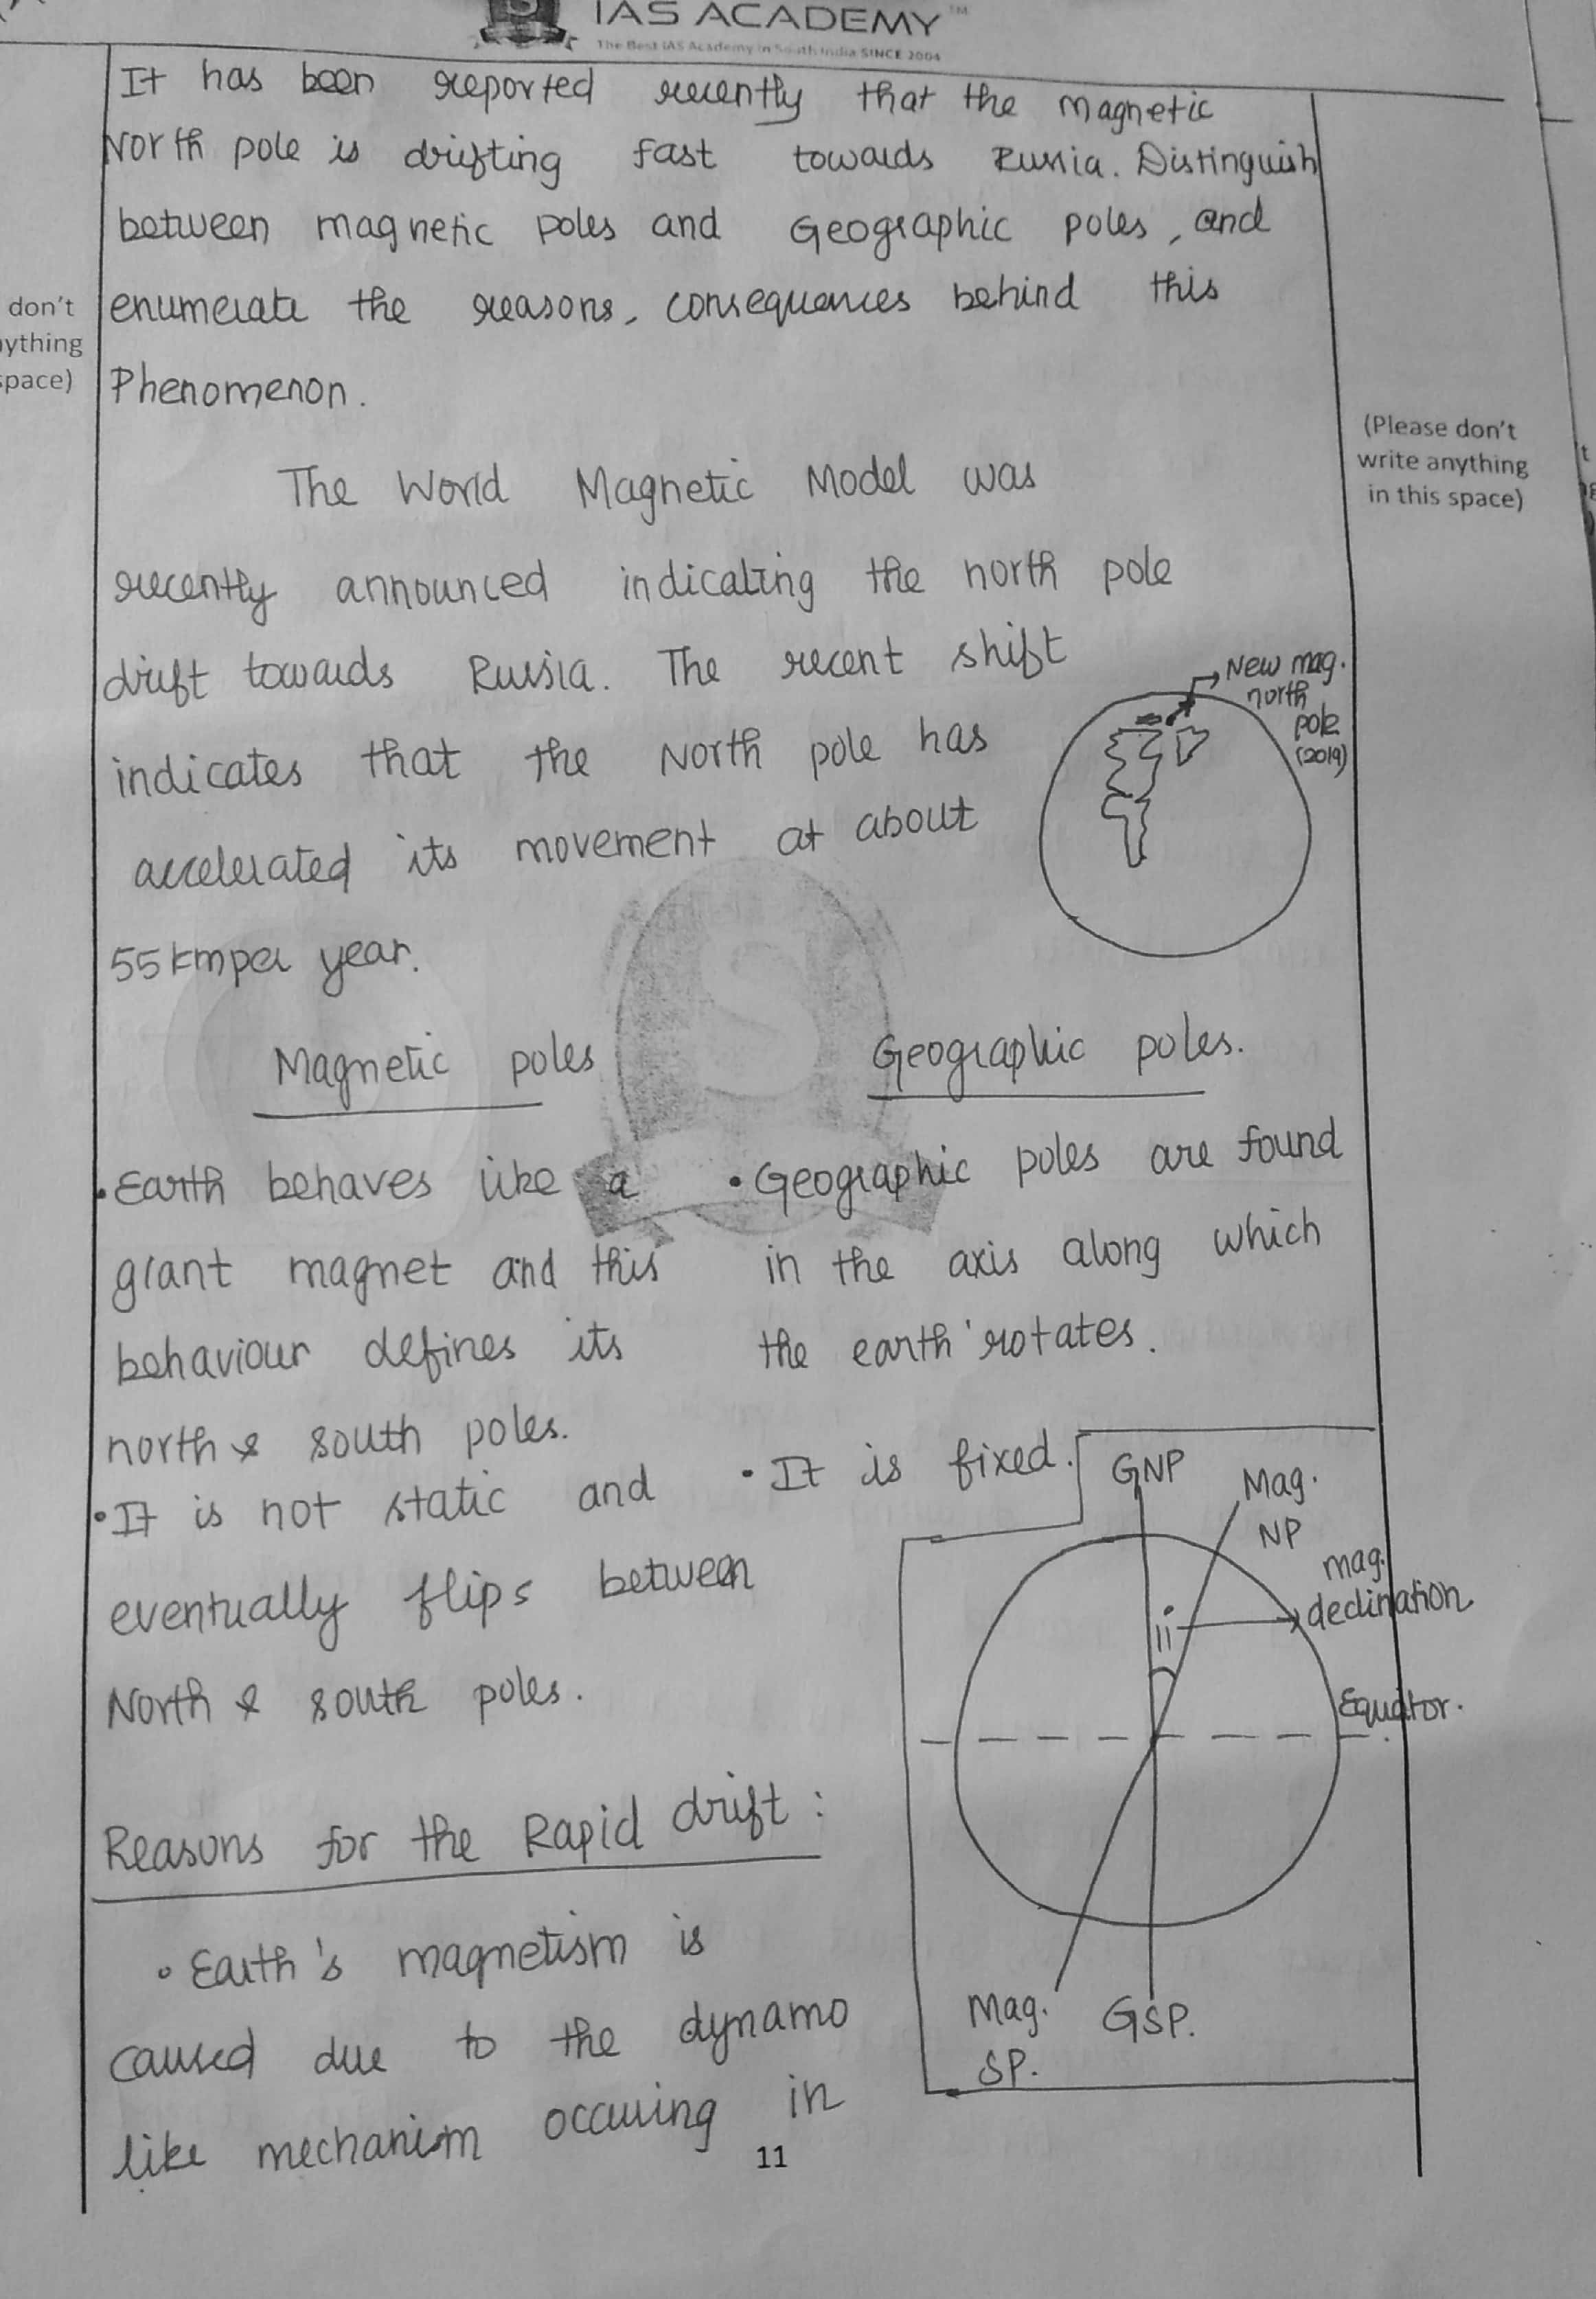 IAS ACADEMY™
The Best IAS Academy in South India SINCE 2004
It has been reported recently that the magnetic
North pole is drifting fast towards Russia. Distinguish
between magnetic poles and Geographic poles, and
enumerate the reasons, consequences behind this
Phenomenon.
don't
ything
space)
(Please don't
write anything
in this space)
The World Magnetic Model was
recently announced indicating the north pole
drift towards Russia. The recent shift
indicates that the North pole has
accelerated its movement at about
55 km per year.
New mag.
north
pole
(2019)
Magnetic poles
• Earth behaves like a
giant magnet and this
behaviour defines its
north & south poles.
• It is not static and
eventually flips between
North & south poles.
Geographic poles.
• Geographic poles are found
in the axis along which
the earth rotates.
• It is fixed.
GNP
Mag.
NP
mag.
declination
Equator.
Mag.
SP.
GSP.
Reasons for the Rapid drift :
• Earth's magnetism is
caused due to the dynamo
like mechanism occuring in
11